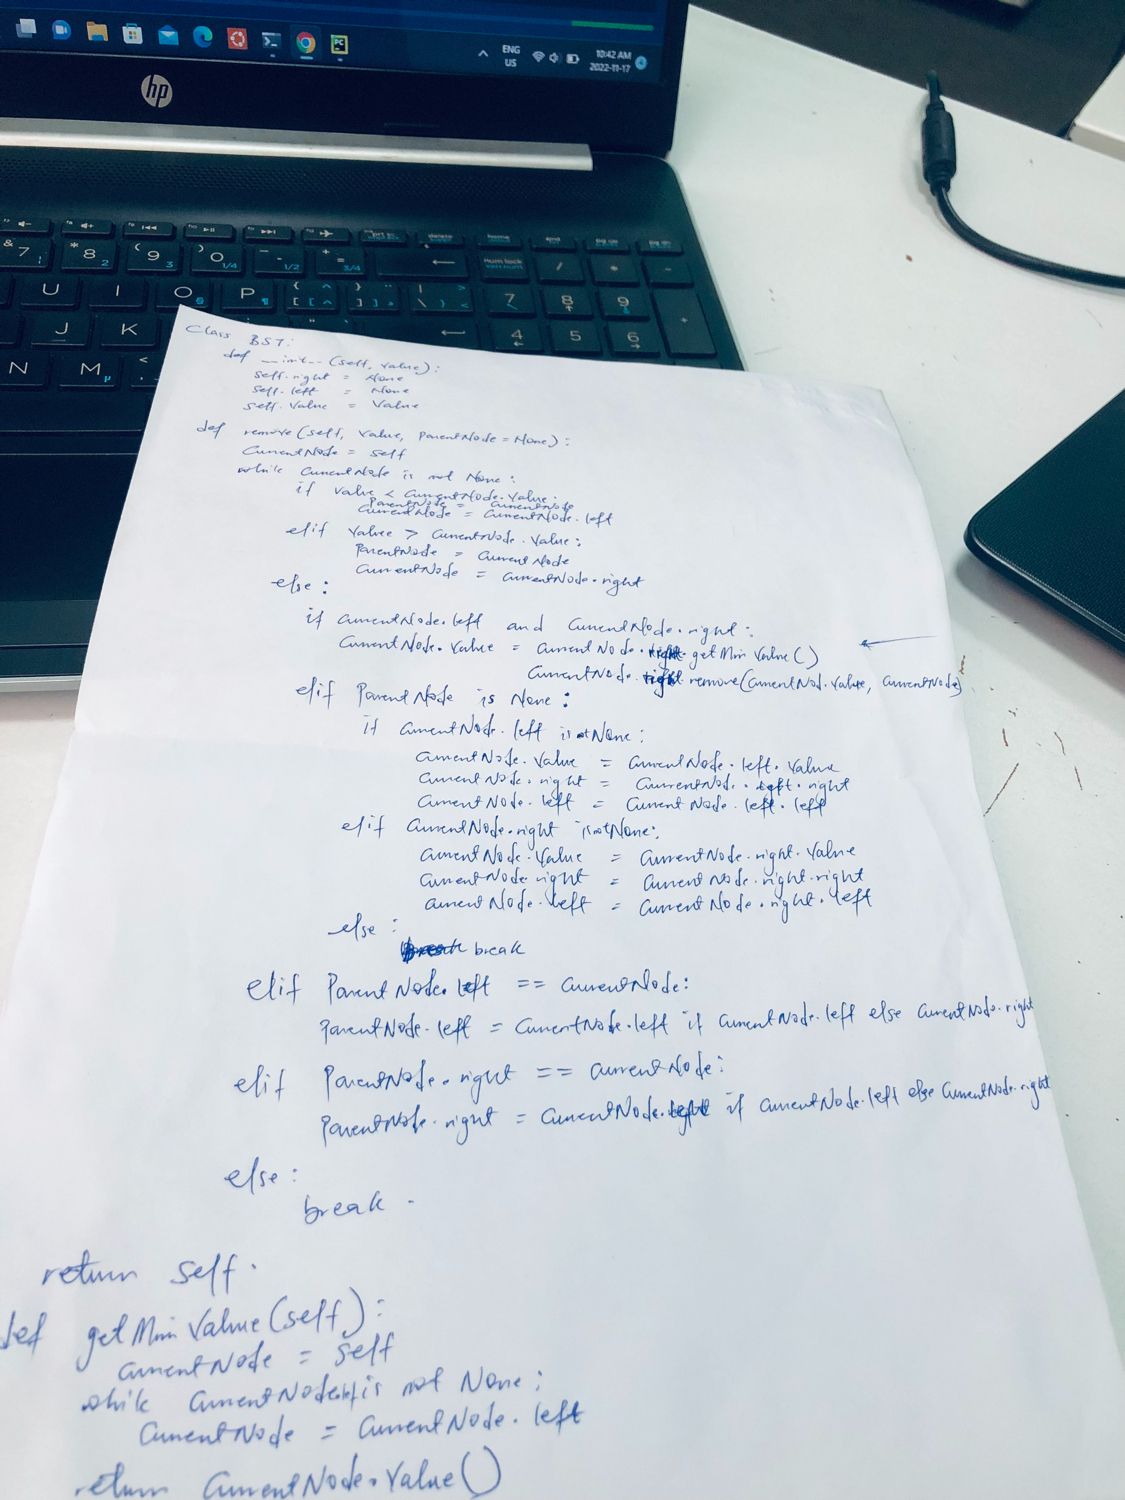 ENG
US
10:42 AM
2022-11-17
hp
7 8 9 0
U I O P
J K
N M
7 8 9
4 5 6
delete home end pg up pg dn
num lock
Class BST:
def __init__(self, value):
self.right = None
self.left = None
self.value = value
def remove(self, value, parentNode = None):
CurrentNode = self
while CurrentNode is not None:
if value < CurrentNode.value:
ParentNode = CurrentNode
CurrentNode = CurrentNode.left
elif value > CurrentNode.value:
ParentNode = CurrentNode
CurrentNode = CurrentNode.right
else:
if currentNode.left and CurrentNode.right:
CurrentNode.value = CurrentNode.right.getMinValue()
CurrentNode.right.remove(CurrentNod.value, CurrentNode)
elif ParentNode is None:
if currentNode.left is not None:
CurrentNode.value = CurrentNode.left.value
CurrentNode.right = CurrentNode.left.right
CurrentNode.left = CurrentNode.left.left
elif CurrentNode.right is not None:
CurrentNode.value = CurrentNode.right.value
CurrentNode.right = CurrentNode.right.right
CurrentNode.left = CurrentNode.right.left
else:
break
elif ParentNode.left == CurrentNode:
ParentNode.left = CurrentNode.left if currentNode.left else currentNode.right
elif ParentNode.right == currentNode:
ParentNode.right = CurrentNode.left if currentNode.left else CurrentNode.right
else:
break.
return self.
def getMinValue(self):
currentNode = self
while CurrentNode.left is not None:
CurrentNode = CurrentNode.left
return CurrentNode.Value()